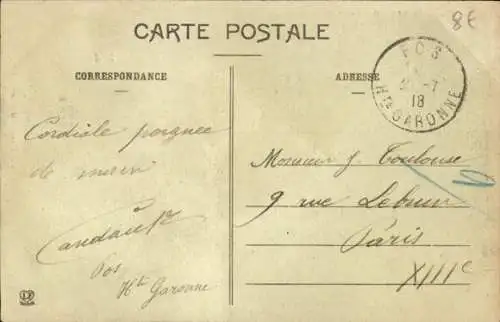 8€
CARTE POSTALE
CORRESPONDANCE
ADRESSE
FOS
-7
18
Hte GARONNE
Cordiale poignee
de main
Fos
Hte Garonne
Monsieur J. Toulouse
9 rue Lebrun
Paris
XIIIe